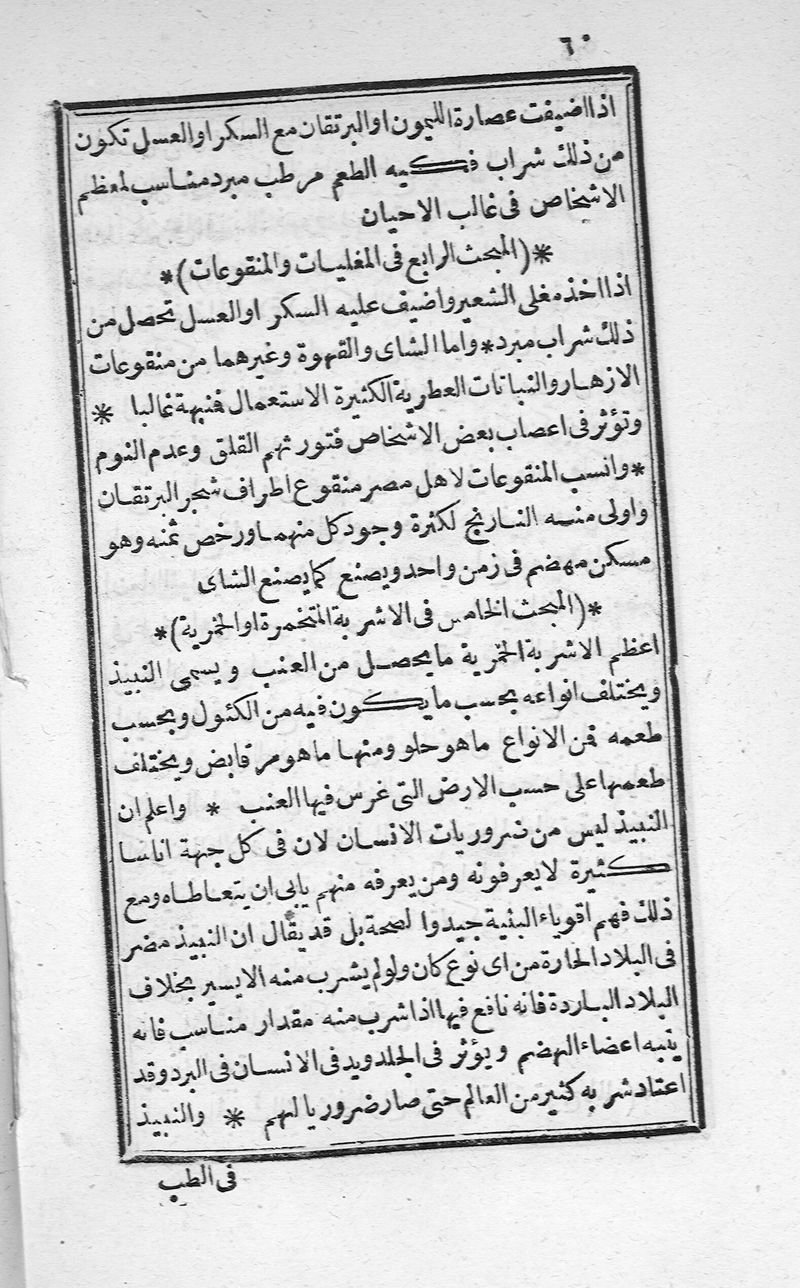 ٦٠
اذا اضيفت عصارة الليمون او البرتقان مع السكر او العسل تكون
من ذلك شراب فكيه الطعم مرطب مبرد مناسب لمعظم
الاشخاص فى غالب الاحيان
*(المبحث الرابع فى المغليات والمنقوعات)*
اذا اخذ مغلى الشعير واضيف عليه السكر او العسل تحصل من
ذلك شراب مبرد * واما الشاى والقهوة وغيرهما من منقوعات
الازهار والنباتات العطرية الكثيرة الاستعمال فنبهة غالبا *
وتؤثر فى اعصاب بعض الاشخاص فتورثهم القلق وعدم النوم
* وانسب المنقوعات لاهل مصر منقوع اطراف شجر البرتقان
واولى منه النارنج لكثرة وجود كل منهما ورخص ثمنه وهو
مسكن مهضم فى زمن واحد ويصنع كما يصنع الشاى
*(المبحث الخامس فى الاشربة المتخمرة او الخمرية)*
اعظم الاشربة الخمرية ما يحصل من العنب ويسمى النبيذ
ويختلف انواعه بحسب ما يكون فيه من الكئول وبحسب
طعمه فمن الانواع ما هو حلو ومنها ما هو مر قابض ويختلف
طعمها على حسب الارض التى غرس فيها العنب * واعلم ان
النبيذ ليس من ضروريات الانسان لان فى كل جهة اناسا
كثيرة لا يعرفونه ومن يعرفه منهم يابى ان يتعاطاه ومع
ذلك فهم اقوياء البنية جيدوا لصحة بل قد يقال ان النبيذ مضر
فى البلاد الحارة من اى نوع كان ولو لم يشرب منه الا يسير بخلاف
البلاد الباردة فانه نافع فيها اذا شرب منه مقدار مناسب فانه
ينبه اعضاء الهضم ويؤثر فى الجلد ويدفى الانسان فى البرد وقد
اعتاد شربه كثير من العالم حتى صار ضروريا لهم * والنبيذ
فى الطب